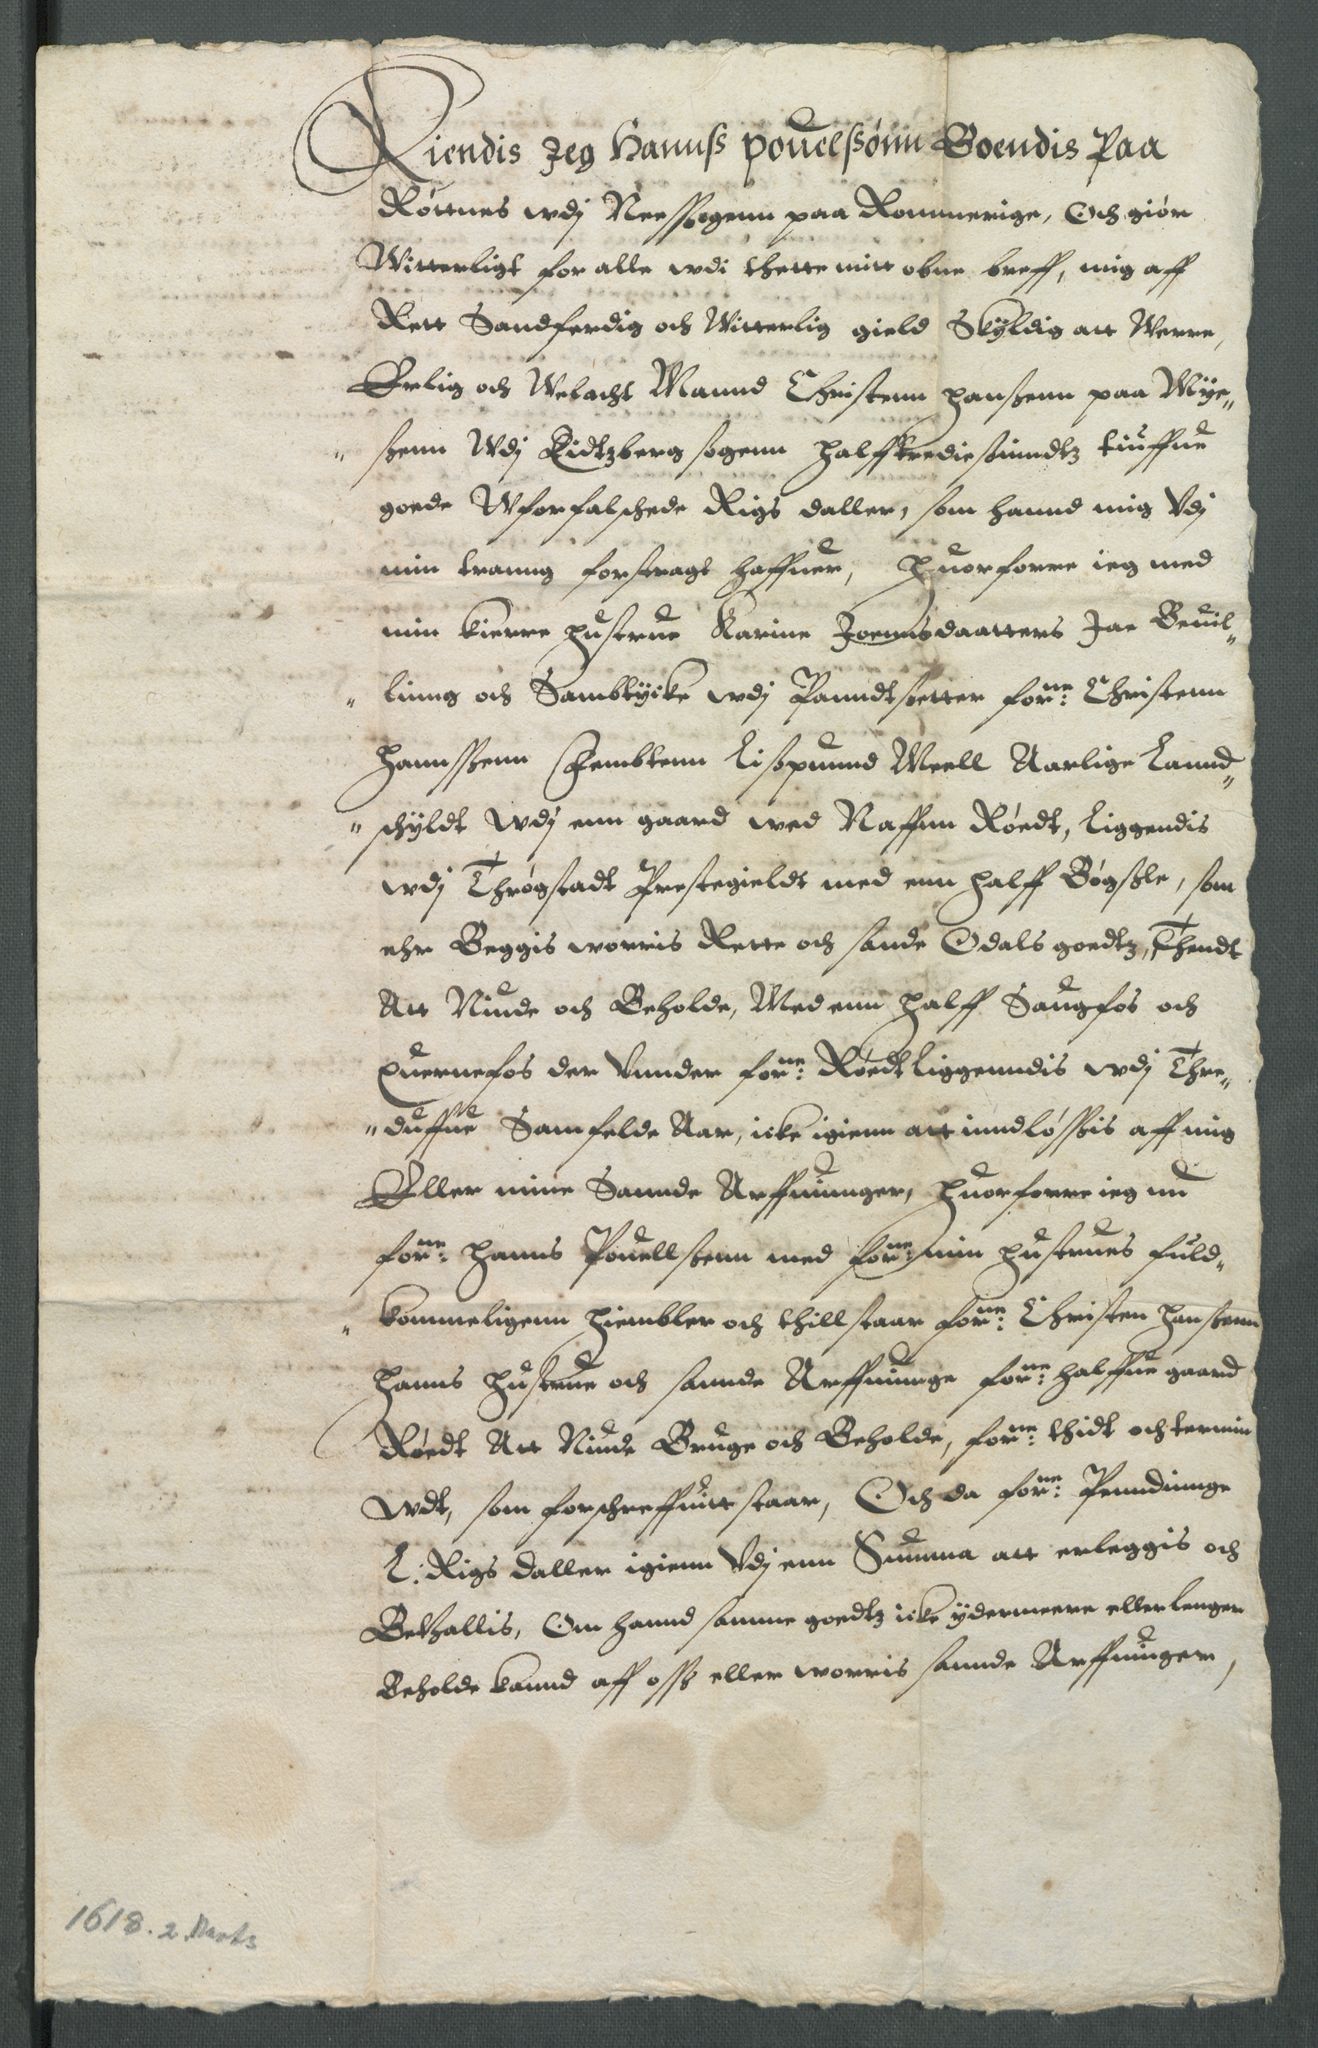 Kiendis Jeg Hannß povelßønn Boendis Paa
Røttnes wdj Neeßsogenn paa Rommerige, Och giør
Witterligt for alle wdi thette mitt obne breff, mig aff
Rett Sandferdig och Witterlig gield Skÿldig att Werre,
Erlig och Welacht Mannd Christenn hanßenn paa Mÿe„
„ ßenn Wdj Eidtzberg sogenn halfftrediesinndtz tiuffue
goede Wforfalschede Rigs daller, som hannd mig Vdj
min tranng forstragt haffuer, huorforre ieg med
min kierre hustrue Karine Joennsdaatters Jae Beuil„
„ linng och Sambtÿcke wdj Panndtßetter forne: Christenn
hannßenn Fembtenn Lißpuund Meell Aarlige Lannd„
„ schÿldt wdj enn gaard wed Naffnn Røedt, liggendis
wdj Thrøgstadt Prestegieldt med enn halff Bøgßle, som
ehr Beggis worris Rette och sande Odals goedtz, Thendt
Att Niude och Beholde, Med enn halff Saugfos och
quernefos der Vnnder forne: Røedt liggenndis wdj Thre„
„ duffue Samfelde Aar, icke igienn att inndløßis aff mig
Eller mine Sannde Arffuinger, huorforre ieg nu
forne: hanns Pouellßenn med forne: min hustrues fuld„
„ kommeligenn hiembler och thillstaar forne: Christen hanßenn
hanns hustrue och sannde Arffuinge forne: halffue gaard
Røedt Att Niude Bruge och Beholde, forne: thidt och termin
wdt, som forschreffuitt staar, Och da forne: Penndinnge
L: Rigs daller igienn Vdj enn Summa att erleggis och
Bethallis, Om hannd samme goedtz icke ÿdermeere eller lenger
Beholde kannd aff oss eller worris sannde Arffuinger,
1618. 2. Marts